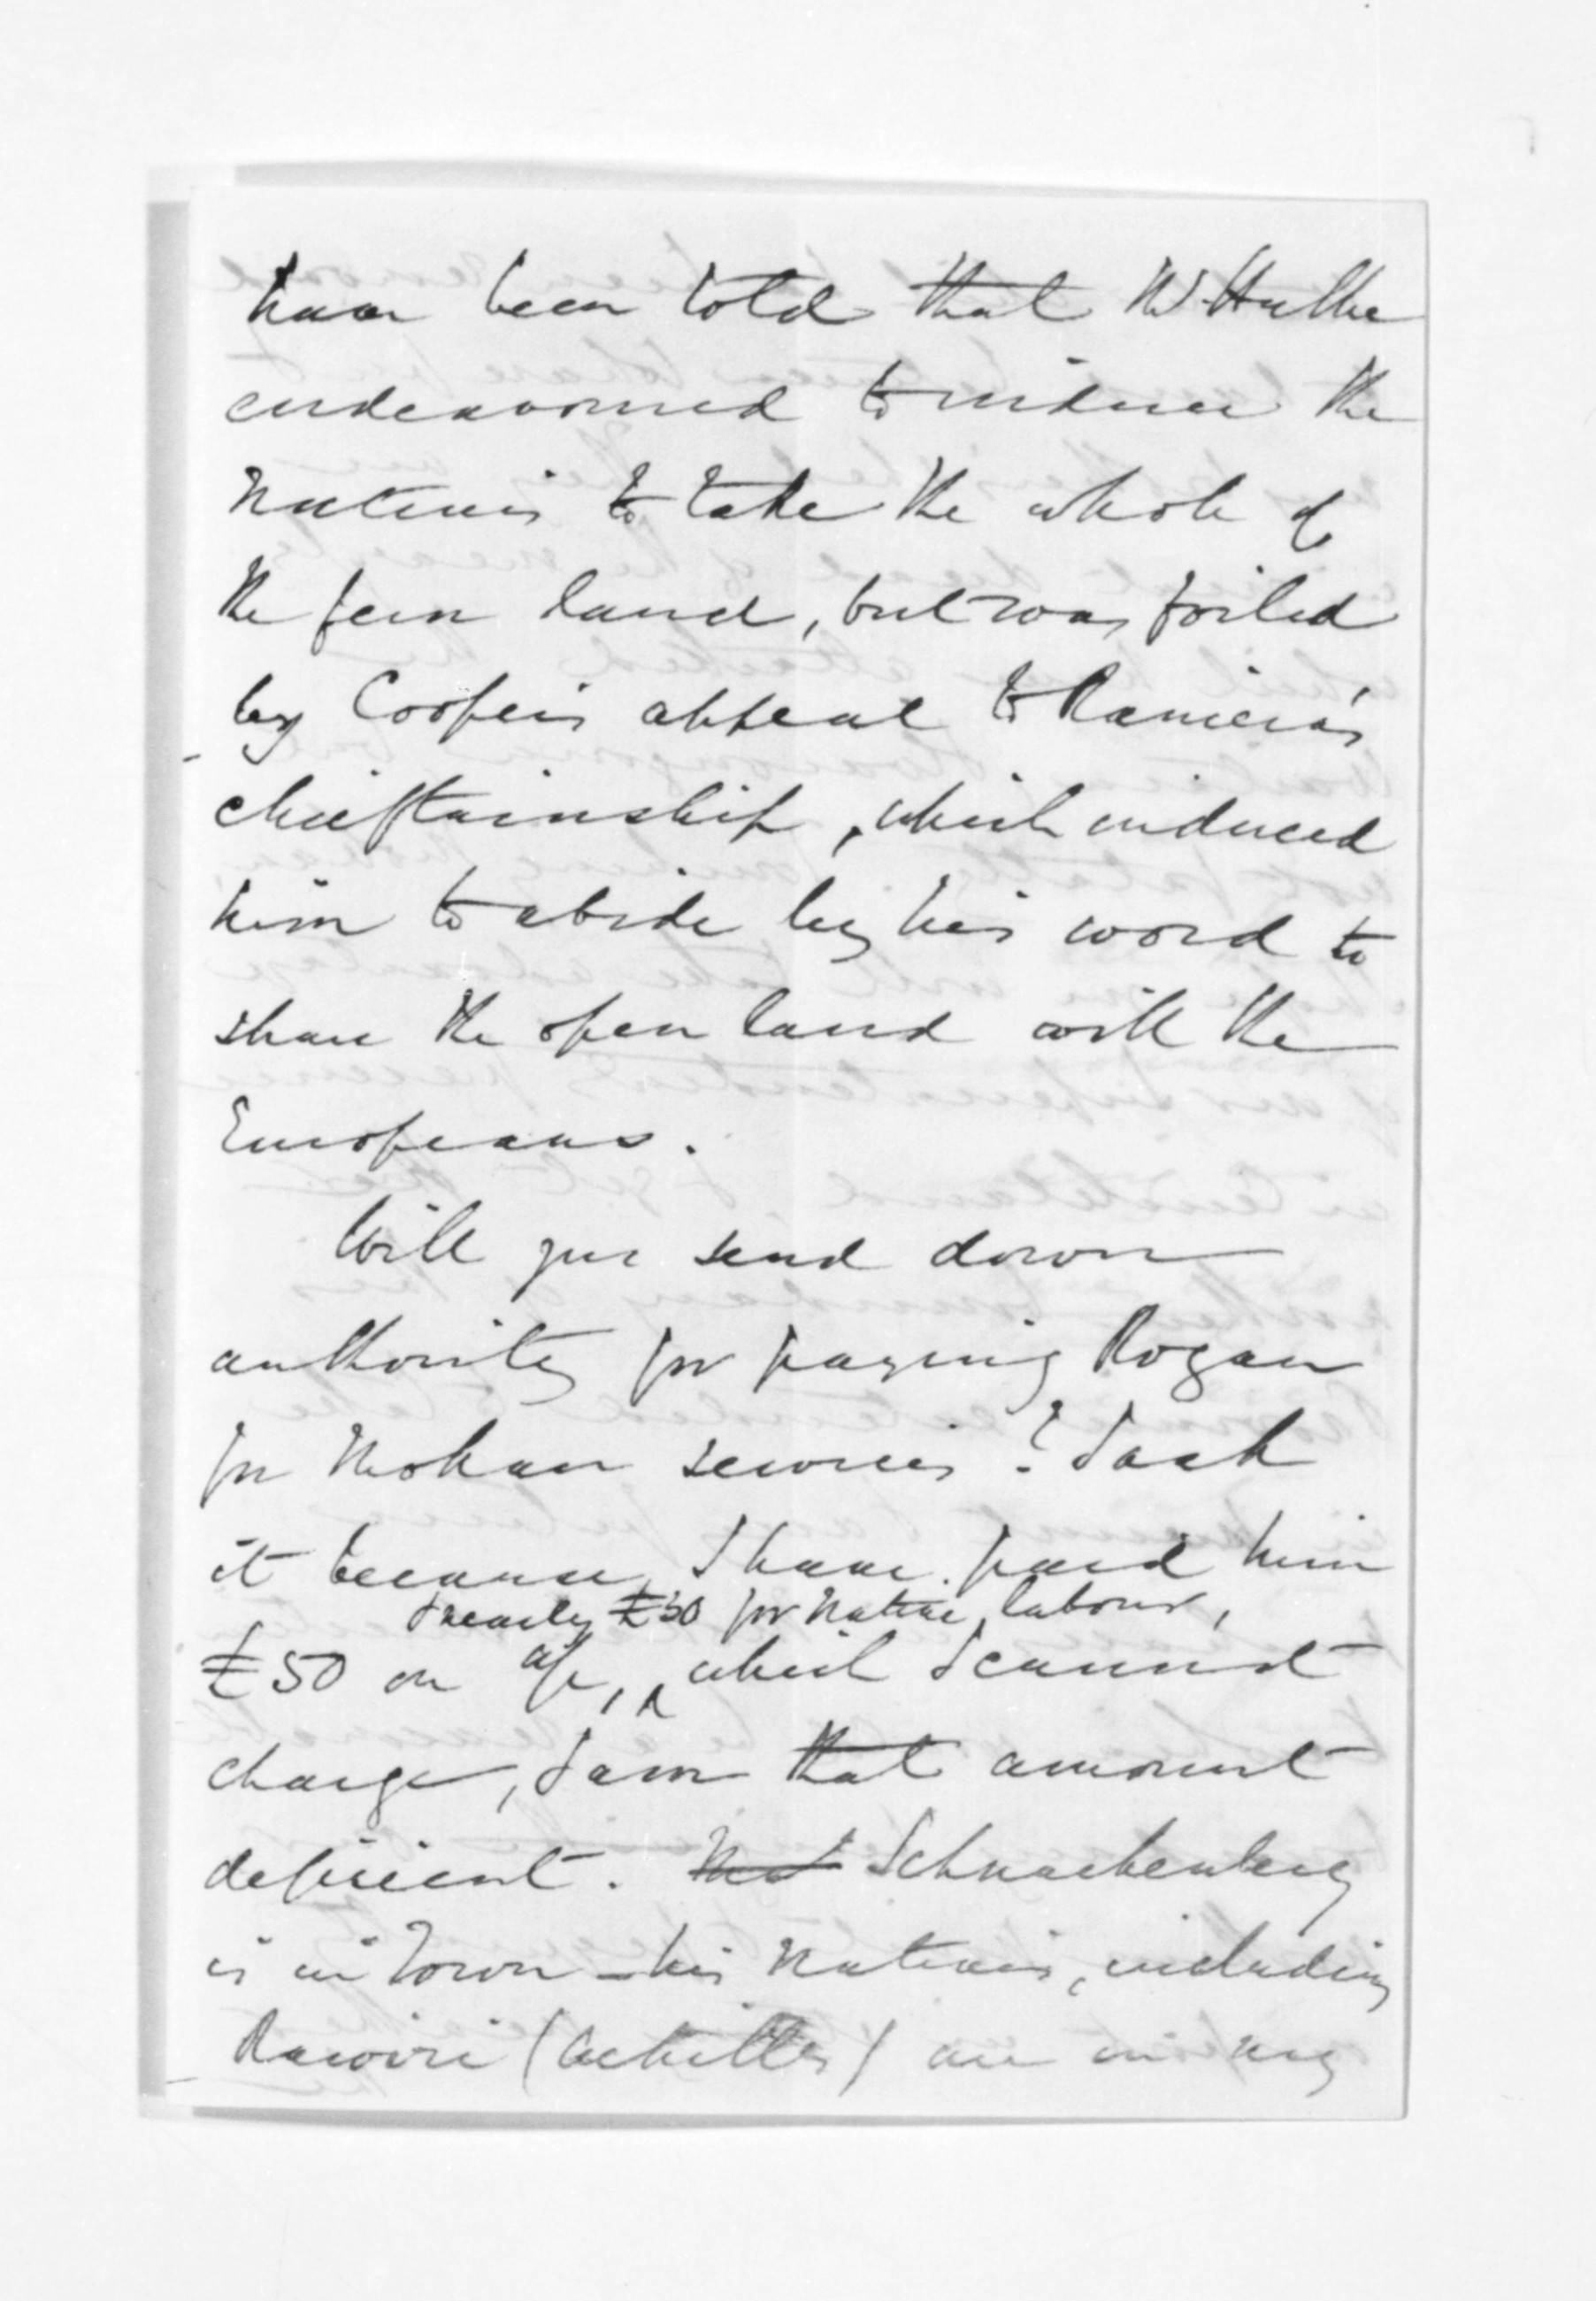 have been told that W. Hulke
endeavoured to induce the
Natives to take the whole of
the fern land, but was foiled
by Cooper's appeal to Raniera's
chieftainship, which induced
him to abide by his word to
share the open land with the
Europeans.
Will you send down
authority for paying Rogan
for Mokau services? I ask
it because, I have paid him
& nearly £50 for native labour,
£50 on a/c, which I cannot
charge, I am that amount
deficient. Schnackenberg
is in Town - his Natives, including
Rawiri (Achilles) are in my